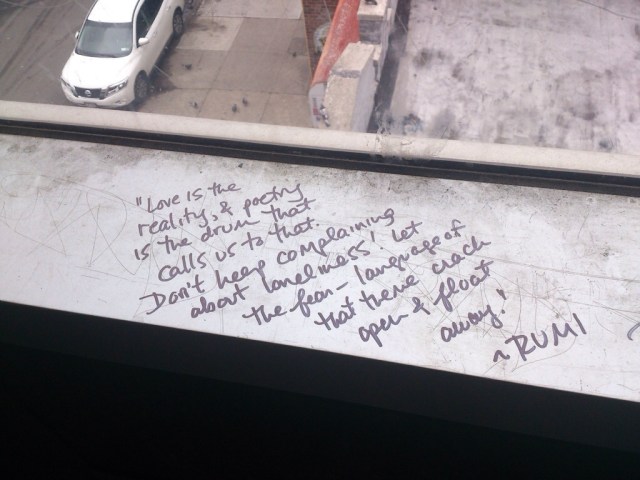 "Love is the
reality, & poetry
is the drum that
calls us to that.
Don't keep complaining
about loneliness! Let
the fear-language of
that theme crack
open & float
away!"
~RUMI